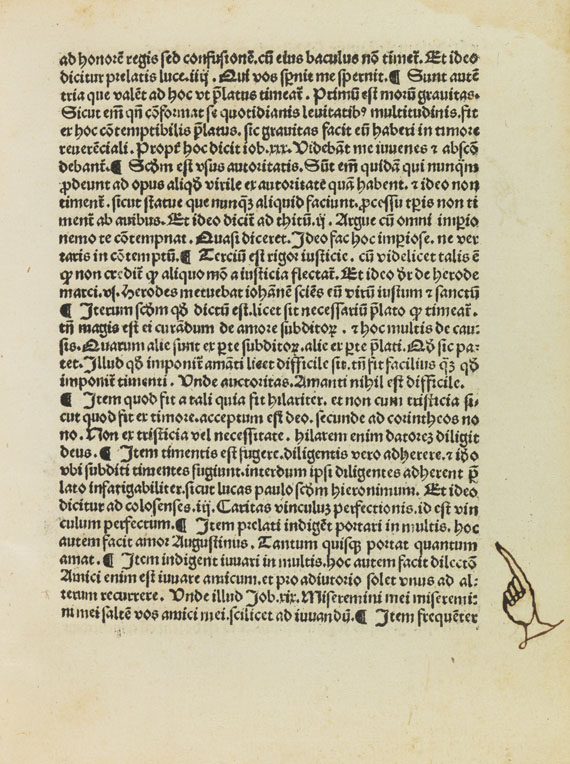 ad honorē regis sed confusionē.cū eius baculus nō timet̄. Et ideo
dicitur prelatis luce.iiij . Qui vos sp̄nit me spernit.¶ Sunt autē
tria que valēt ad hoc vt p̄latus timeat̄. Primū est morū grauitas.
Sicut em̄ qn̄ cōformat se quotidianis leuitatibꝰ multitudinis.fit
ex hoc cōtemptibilis p̄latus. sic grauitas facit eū haberi in timore
reuerēciali. Propt̄ hoc dicit iob.xxx. Videbāt me iuuenes ⁊ abscō
debant̄.¶ Scd̄m est vsus autoritatis. Sūt em̄ quidā qui nunqꝫ
ꝓdeunt ad opus aliqd̄ virile ex autoritate quā habent. ⁊ ideo non
timent̄. sicut statue que nunqꝫ aliquid faciunt.ꝓcessu tp̄is non ti
ment̄ ab auibus. Et ideo dicit̄ ad thitū.ij. Argue cū omni imp̱io
nemo te cōtempnat. Quasi diceret. Ideo fac hoc imp̱iose. ne ver
taris in cōtemptū.¶ Terciū est rigor iusticie. cū videlicet talis ē
ꝙ non credit̄ ꝙ aliquo mō a iusticia flectat̄. Et ideo dr̄ de herode
marci.vj. Herodes metuebat iohānē sciēs eū virū iustum ⁊ sanctū
¶ Iterum scd̄m qd̄ dictū est.licet sit necessariū p̄lato ꝙ timeat̄.
tn̄ magis est ei curādum de amore subditoꝝ . ⁊ hoc multis de cau⸗
sis. Quarum alie sunt ex pte subditoꝝ. alie ex pte p̄lati. Qd̄ sic pa⸗
tet. Illud qd̄ imponit̄ amāti licet difficile sit. tn̄ fit facilius qꝫ qd̄
imponit̄ timenti . Vnde auctoritas. Amanti nihil est difficile.
¶ Item quod fit a tali quia fit hilariter. et non cum tristicia si⸗
cut quod fit ex timore. acceptum est deo. secunde ad corintheos no
no. Non ex tristicia vel necessitate . hilarem enim datoreꝫ diligit
deus.¶ Item timentis est fugere. diligentis vero adherere. ⁊ iō
vbi subditi timentes fugiunt. interdum ipsi diligentes adherent p̄
lato infatigabiliter. sicut lucas paulo scd̄m hieronimum. Et ideo
dicitur ad colosenses. iij. Caritas vinculuꝫ perfectionis. id est vin
culum perfectum.¶ Item prelati indigēt portari in multis. hoc
autem facit amor Augustinus. Tantum quisqꝫ portat quantum
amat. ¶ Item indigent iuuari in multis. hoc autem facit dilectō
Amici enim est iuuare amicum. et pro adiutorio solet vnus ad al⸗
terum recurrere. Vnde illud Job.xix. Miseremini mei miseremi⸗
ni mei saltē vos amici mei. scilicet ad iuuandū.¶ Item frequēter